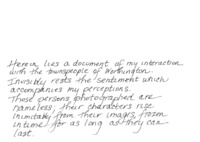 Herein, lies a document of my interaction
with the townspeople of Worthington.
Invisibly rests the sentiment which
accompanies my perceptions.
Those persons photographed are
nameless; their characters rise
inimitably from their images, frozen
in time for as long as they can
last.